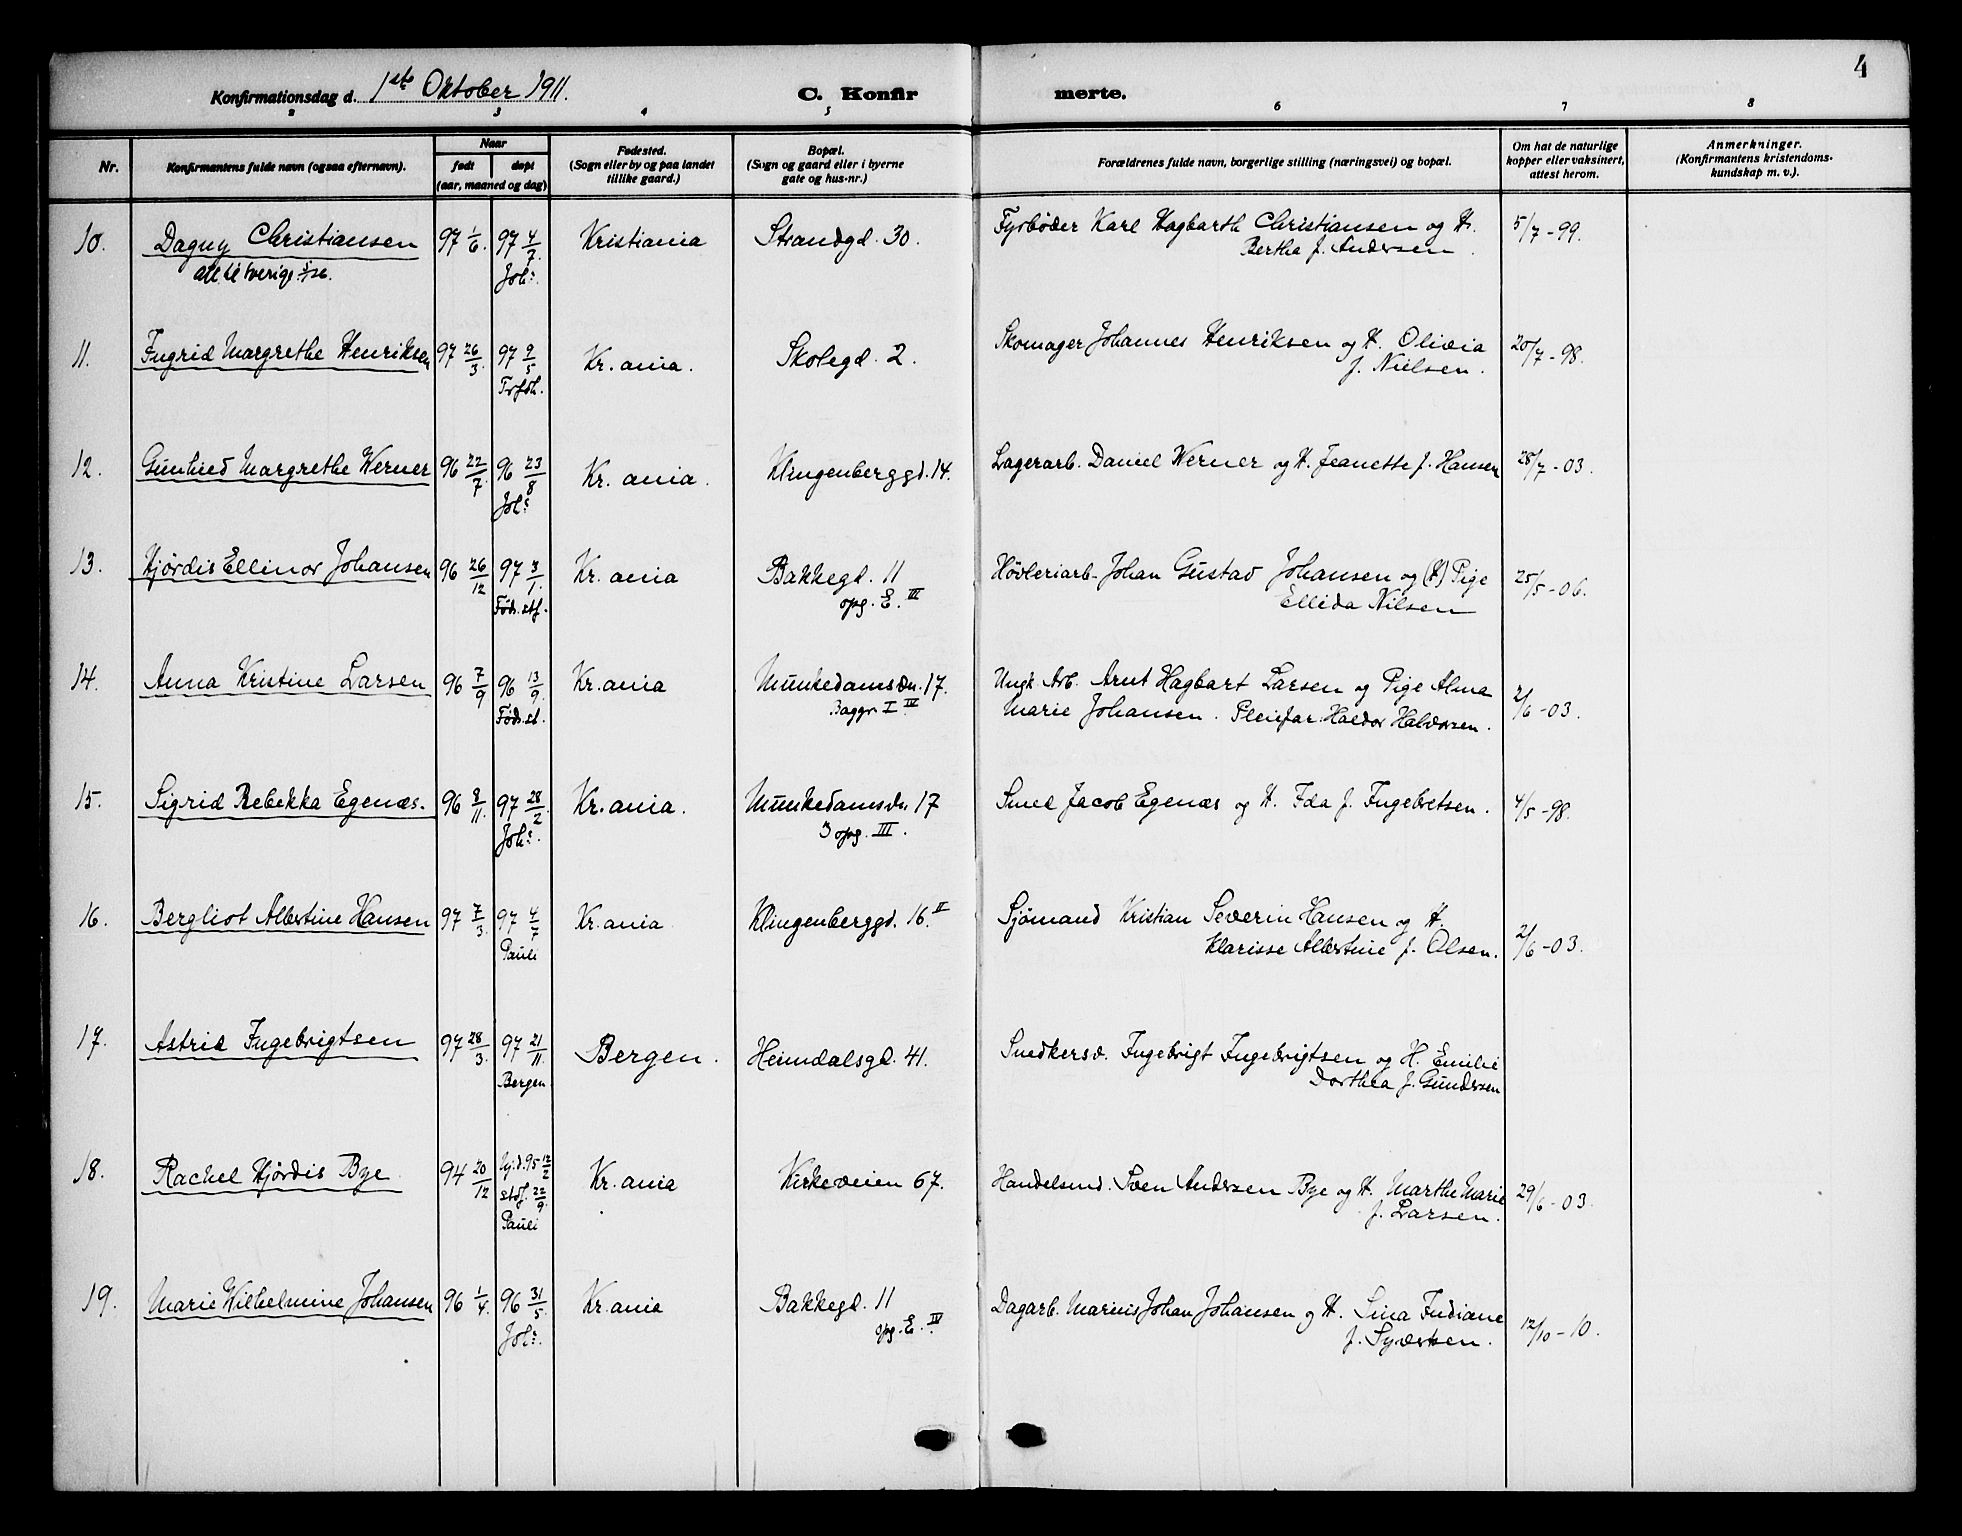 4
Konfirmationsdag d. 1ste Oktober 1911. C. Konfirmerte.
2 3 4 5 6 7 8
Nr. Konfirmantens fulde navn (ogsaa efternavn). Naar født døpt (aar, maaned og dag) Fødested. (Sogn eller by og paa landet tillike gaard.) Bopæl. (Sogn og gaard eller i byerne gate og hus-nr.) Forældrenes fulde navn, borgerlige stilling (næringsvei) og bopæl. Om hat de naturlige kopper eller vaksinert, attest herom. Anmerkninger. (Konfirmantens kristendomskundskap m. v.).
10. Dagny Christiansen 97 1/6 97 4/7. Kristiania Strandgd. 30. Fyrbøder Karl Hagbarth Christiansen og H. 5/7-99.
Joh:. Bertha f. Andersen.
11. Ingrid Margrethe Henriksen 97 26/3. 97 9/5 Kr.ania. Skolegd. 2. Skomager Johannes Henriksen og H. Olivia 20/7-98.
Trfdh. f. Nielsen.
12. Gunhild Margrethe Werner 96 22/7. 96 23/8 Kr.ania. Klingenberggd. 14. Lagerarb. Daniel Werner og H. Jeanette f. Hansen 28/7-03.
Joh:
13. Hjørdis Ellinor Johansen 96 26/12 97 3/1. Kr.ania Bakkegd. 11 Høvleriarb. Johan Gustav Johansen og (H) Pige 25/5-06.
Føds.stf. opg. E. III Ellida Nilsen
14. Anna Kristine Larsen 96 7/9 96 13/9. Kr.ania Munkedamsvn. 17. Ungk. Arb. Arnt Hagbart Larsen og Pige Alma 2/6-03.
Føds.st. Baggr. I IV. Marie Johansen. Pleiefar: Haldor Halvorsen.
15. Sigrid Rebekka Egenæs. 96 8/11. 97 28/2 Kr.ania. Munkedamsvn 17 Smed Jacob Egenæs og H. Ida f. Ingebretsen. 4/5-98.
Joh:. 3 opg. III.
16. Bergliot Albertine Hansen 97 7/3. 97 4/7 Kr.ania Klingenberggd. 16 II Sjømand Kristian Severin Hansen og H. 2/6-03.
Pauli Klarisse Albertine f. Olsen.
17. Astrid Ingebrigtsen 97 28/3. 97 21/11. Bergen. Heimdalsgd. 41. Snedkersv. Ingebrigt Ingebrigtsen og H. Emilie
Bergen Dorthea f. Gundersen
18. Rachel Hjørdis Bye 94 20/12 Hj.d. 95 12/2 Kr.ania Kirkeveien 67. Handelsmd. Sven Andersen Bye og H. Marthe Marie 29/6-03.
stdf. 22/9. f. Larsen.
Pauli
19. Marie Wilhelmine Johansen 96 1/4. 96 31/5. Kr.ania Bakkegd. 11 Dagarb. Marius Johan Johansen og H. Sina Indiane 12/10-10.
Joh:. opg. E. IV f. Syvertsen.